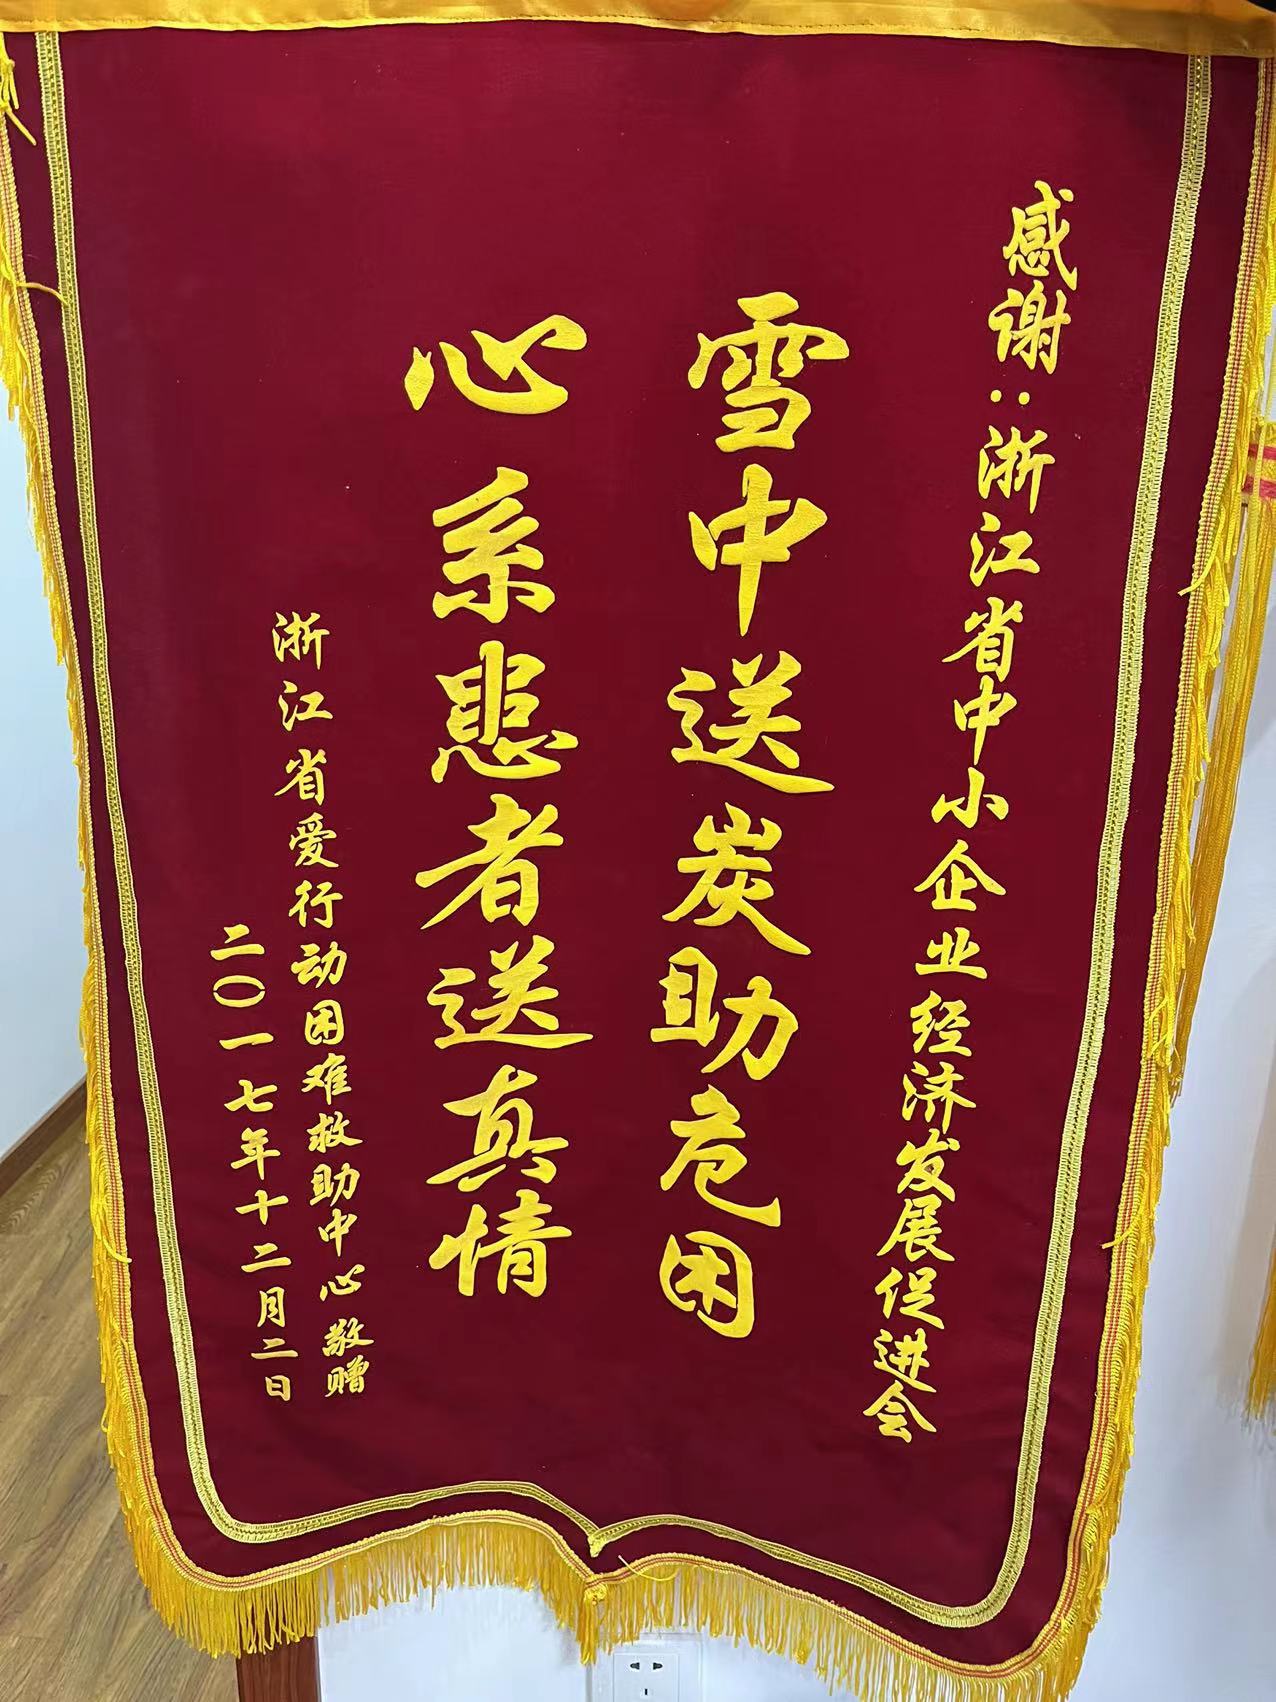 感谢：浙江省中小企业经济发展促进会
雪中送炭助危困
心系患者送真情
浙江省爱行动困难救助中心 敬赠
二〇一七年十二月二日